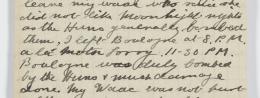 leave my waac who
did not like Moonlight nights
as the Huns generally bombed
them. I left Boulogne at 8. P.M.
a la Motor Lorry. 11-30 P.M.
Boulogne was duly bombed
by the Huns & much damage
done. My Waac was not hurt